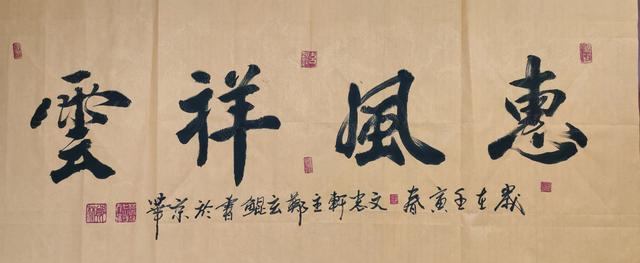 惠風祥雲
歲在壬寅春文宏軒主鄭玄鯤書於京華